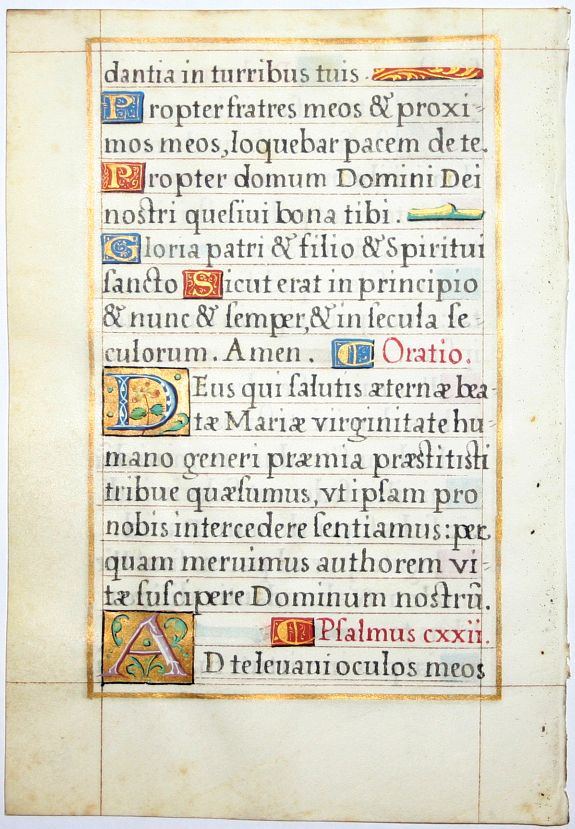 dantia in turribus tuis.
Propter fratres meos & proxi-
mos meos, loquebar pacem de te.
Propter domum Domini Dei
noſtri queſiui bona tibi.
Gloria patri & filio & Spiritui
ſancto Sicut erat in principio
& nunc & ſemper, & in ſecula ſe-
culorum. Amen. Oratio.
DEus qui ſalutis æternæ bea-
tæ Mariæ virginitate hu-
mano generi præmia præſtitiſti
tribue quæſumus, vt ipſam pro
nobis intercedere ſentiamus: per
quam meruimus authorem vi-
tæ ſuſcipere Dominum noſtrũ.
Pſalmus cxxii.
AD te leuaui oculos meos